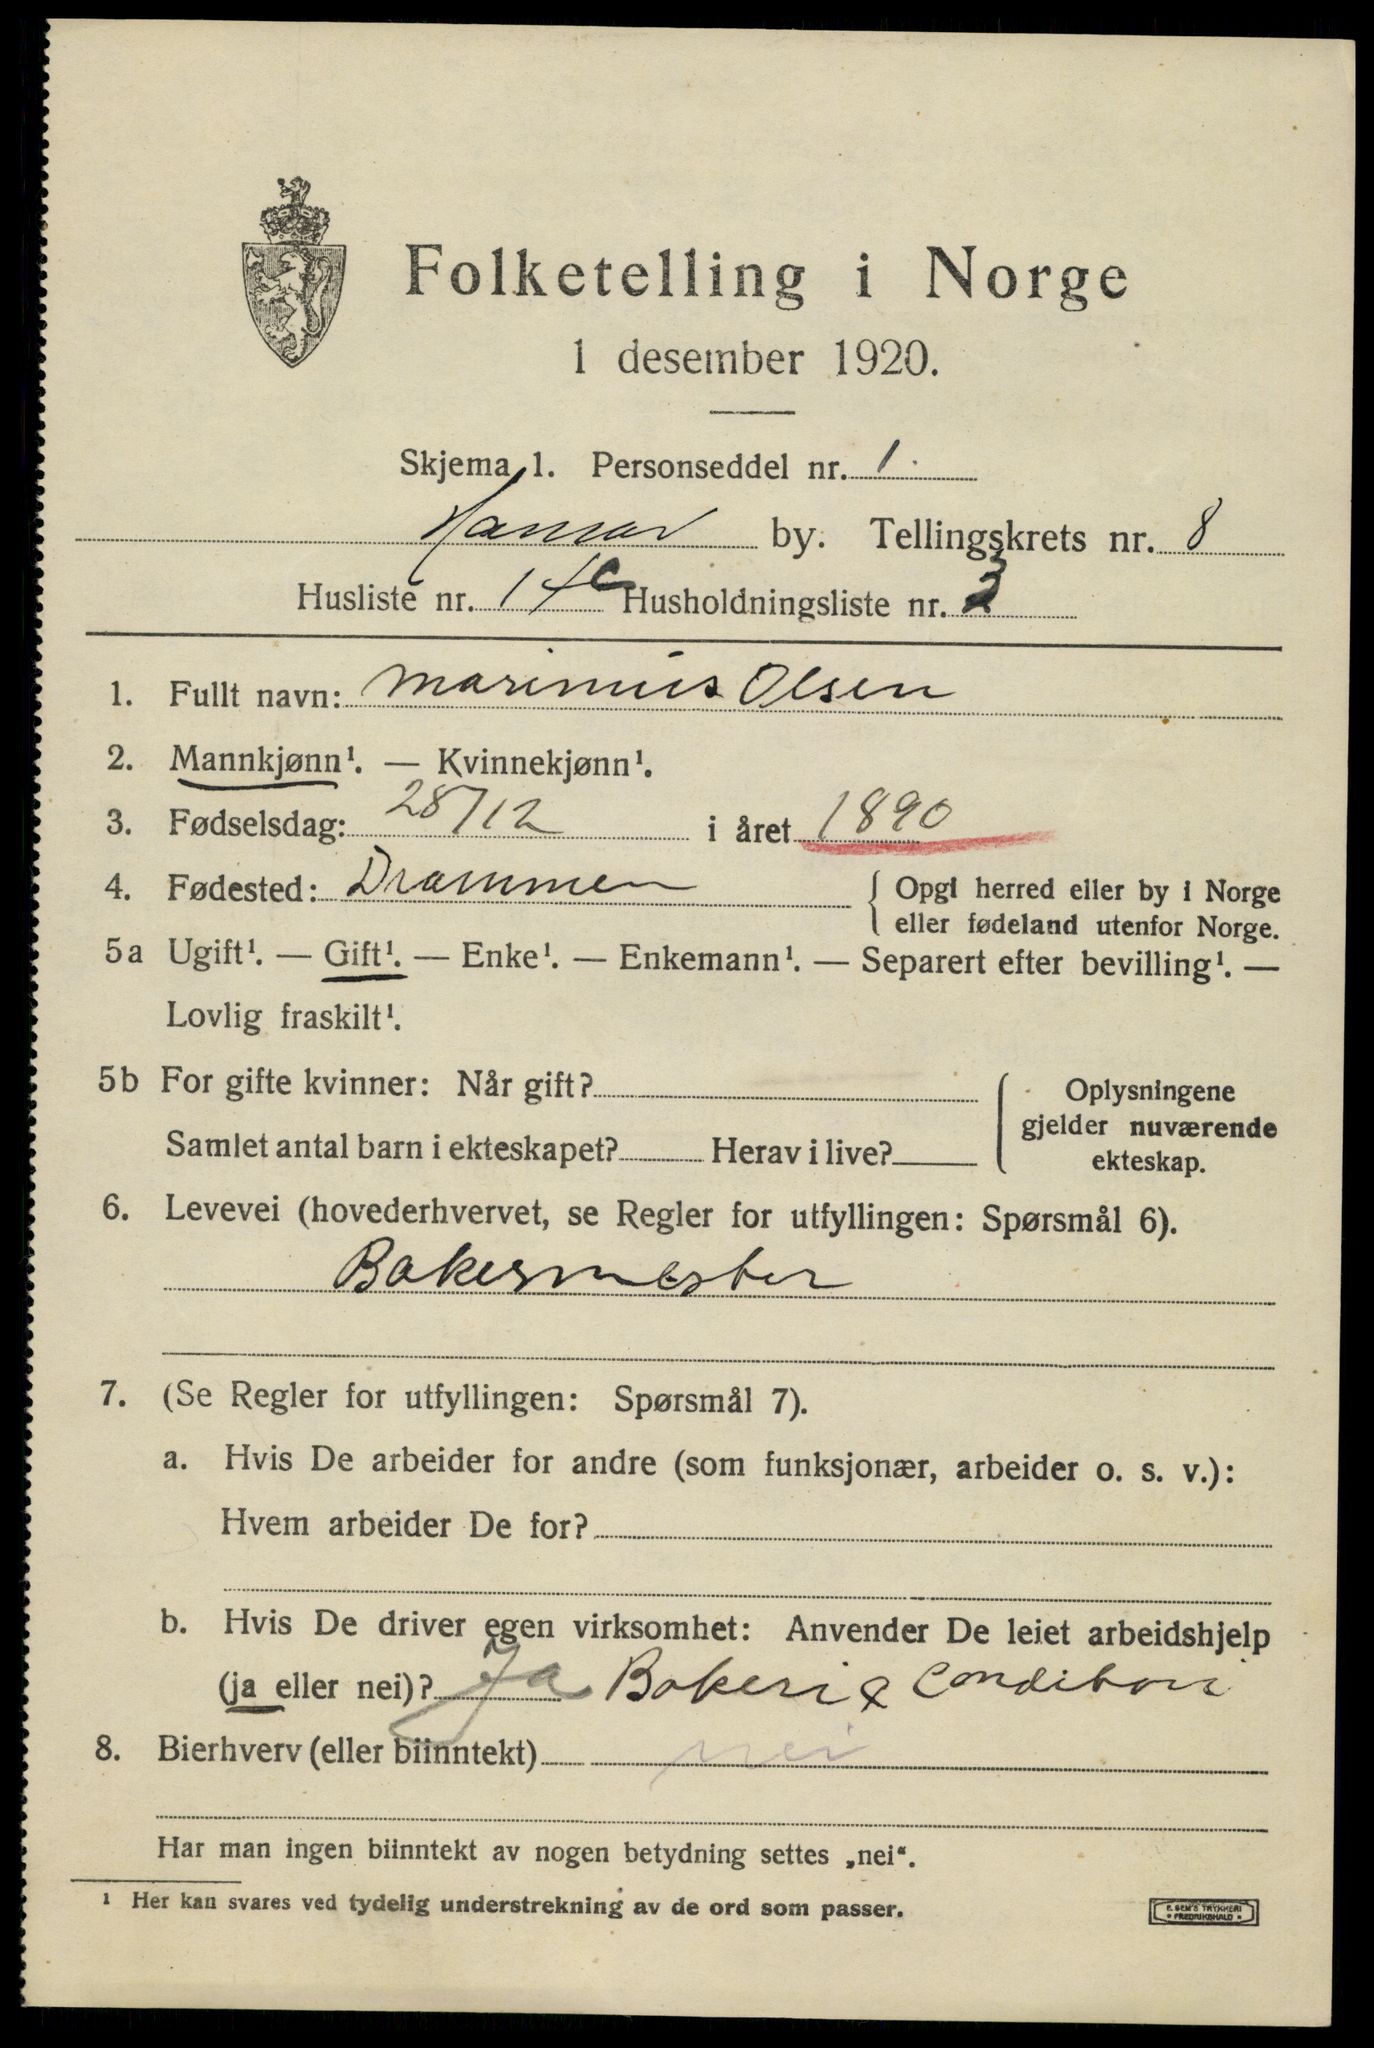 Folketelling i Norge
1 desember 1920.
Skjema 1. Personseddel nr. 1.
Hamar by. Tellingskrets nr. 8
Husliste nr. 14c Husholdningsliste nr. 3
1. Fullt navn: Marinius Olsen
2. Mannkjønn¹. — Kvinnekjønn¹.
3. Fødselsdag: 28/12 i året 1890
4. Fødested: Drammen { Opgi herred eller by i Norge
eller fødeland utenfor Norge.
5a Ugift¹. — Gift¹. — Enke¹. — Enkemann¹. — Separert efter bevilling¹. —
Lovlig fraskilt¹.
5b For gifte kvinner: Når gift? Oplysningene
gjelder nuværende
Samlet antal barn i ekteskapet? Herav i live? ekteskap.
6. Levevei (hovederhvervet, se Regler for utfyllingen: Spørsmål 6).
Bakermester
7. (Se Regler for utfyllingen: Spørsmål 7).
a. Hvis De arbeider for andre (som funksjonær, arbeider o. s. v.):
Hvem arbeider De for?
b. Hvis De driver egen virksomhet: Anvender De leiet arbeidshjelp
(ja eller nei)? Ja Bakeri & Conditori
8. Bierhverv (eller biinntekt) nei
Har man ingen biinntekt av nogen betydning settes „nei".
¹ Her kan svares ved tydelig understrekning av de ord som passer.
E. SEM'S TRYKKERI
* FREDRIKSHALD *